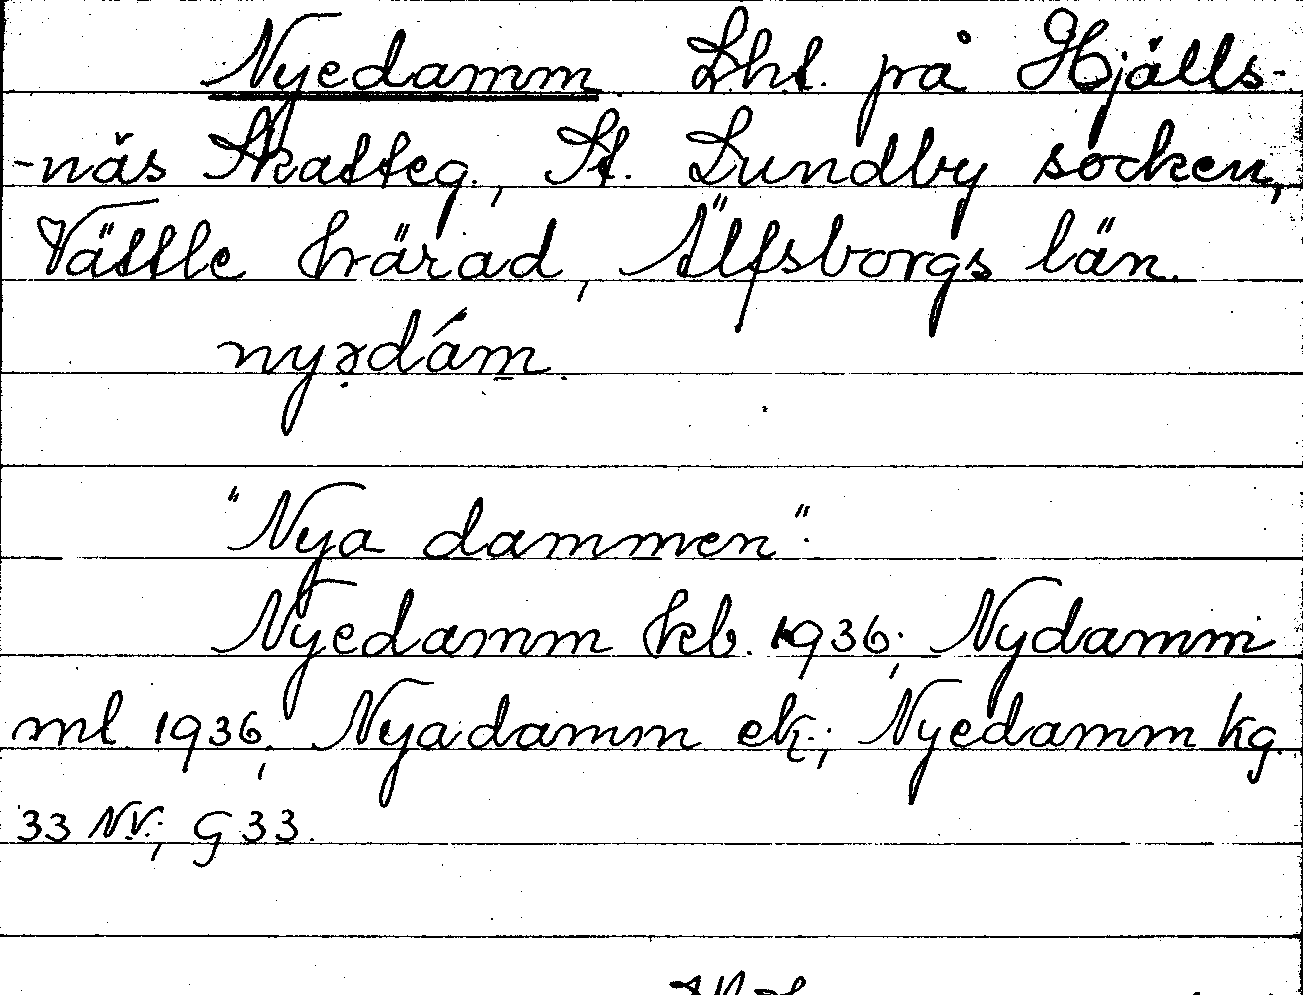 Nyedamm. Lht. på Hjälls-
-näs Skatteg., St. Lundby socken,
Vättle härad, Älfsborgs län.
nyədám.
"Nya dammen".
Nyedamm hkb. 1936; Nydamm
ml. 1936, Nyadamm ek.; Nyedamm kg.
33 NV.; G 33.